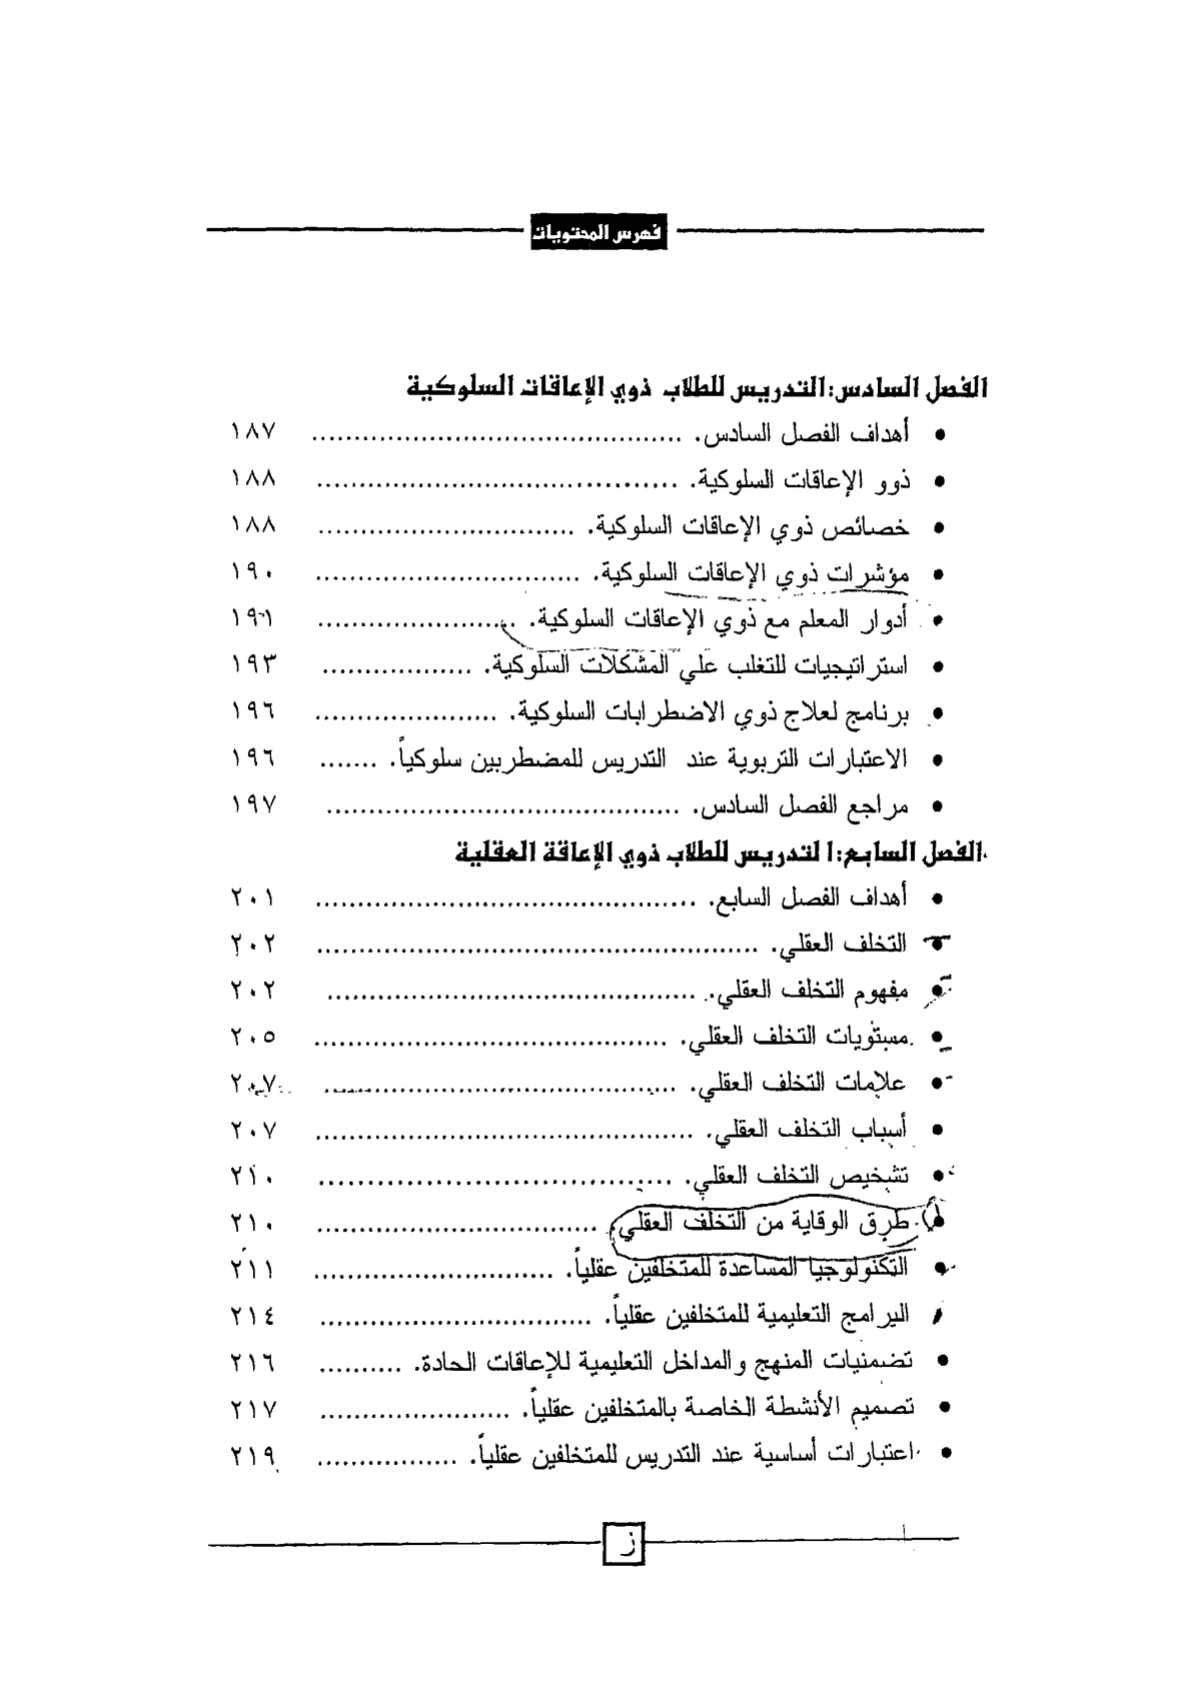 فهرس المحتويات
الفصل السادس: التدريس للطلاب ذوي الإعاقات السلوكية
• أهداف الفصل السادس. ............................................ ١٨٧
• ذوو الإعاقات السلوكية. ........................................... ١٨٨
• خصائص ذوي الإعاقات السلوكية. ............................... ١٨٨
• مؤشرات ذوي الإعاقات السلوكية. ................................ ١٩٠
• أدوار المعلم مع ذوي الإعاقات السلوكية. ........................ ١٩١
• استراتيجيات للتغلب علي المشكلات السلوكية. .................. ١٩٣
• برنامج لعلاج ذوي الاضطرابات السلوكية. ...................... ١٩٦
• الاعتبارات التربوية عند التدريس للمضطربين سلوكياً. ....... ١٩٦
• مراجع الفصل السادس. .......................................... ١٩٧
الفصل السابع: التدريس للطلاب ذوي الإعاقة العقلية
• أهداف الفصل السابع. ............................................. ٢٠١
• التخلف العقلي. ..................................................... ٢٠٢
• مفهوم التخلف العقلي. ............................................ ٢٠٢
• مستويات التخلف العقلي. .......................................... ٢٠٥
• علامات التخلف العقلي. .......................................... ٢٠٧
• أسباب التخلف العقلي. ............................................. ٢٠٧
• تشخيص التخلف العقلي. .......................................... ٢١٠
• طرق الوقاية من التخلف العقلي. ................................. ٢١٠
• التكنولوجيا المساعدة للمتخلفين عقلياً. ............................ ٢١١
• البرامج التعليمية للمتخلفين عقلياً. ................................ ٢١٤
• تضمنيات المنهج والمداخل التعليمية للإعاقات الحادة. .......... ٢١٦
• تصميم الأنشطة الخاصة بالمتخلفين عقلياً. ....................... ٢١٧
• اعتبارات أساسية عند التدريس للمتخلفين عقلياً. ................. ٢١٩
ز